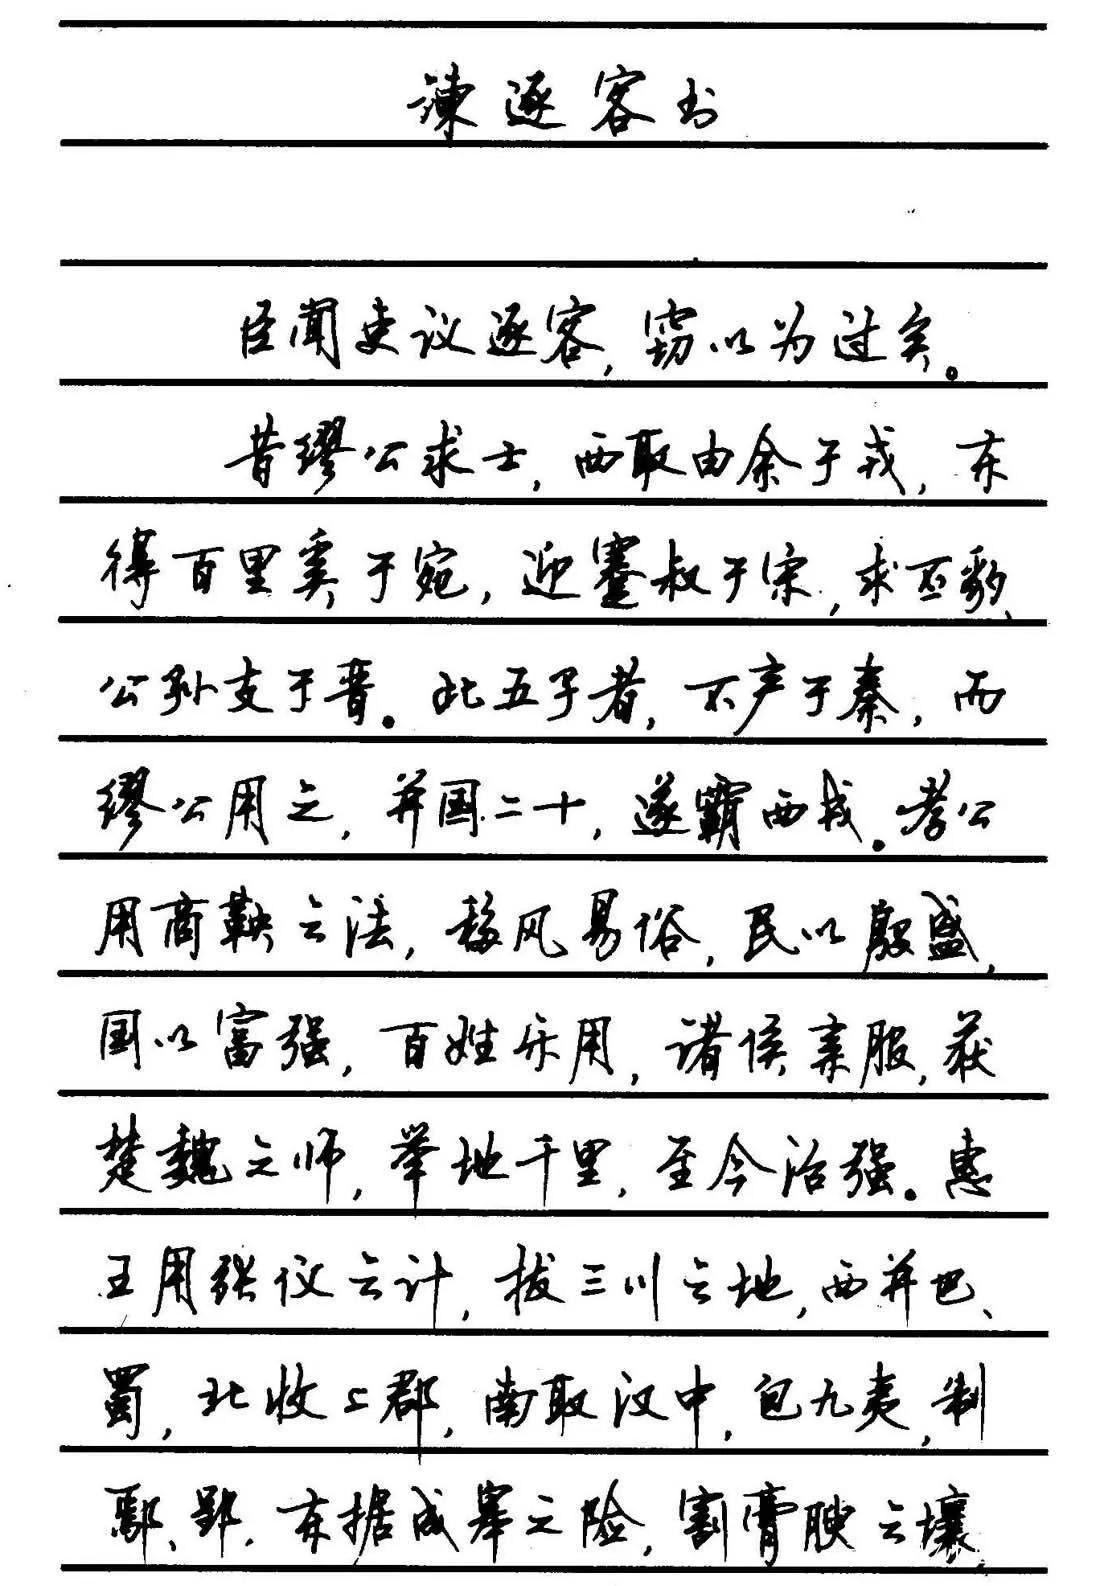 谏逐客书
臣闻吏议逐客，窃以为过矣。
昔缪公求士，西取由余于戎，东
得百里奚于宛，迎蹇叔于宋，求丕豹、
公孙支于晋。此五子者，不产于秦，而
缪公用之，并国二十，遂霸西戎。孝公
用商鞅之法，移风易俗，民以殷盛，
国以富强，百姓乐用，诸侯亲服，获
楚魏之师，举地千里，至今治强。惠
王用张仪之计，拔三川之地，西并巴、
蜀，北收上郡，南取汉中，包九夷，制
鄢、郢，东据成皋之险，割膏腴之壤，